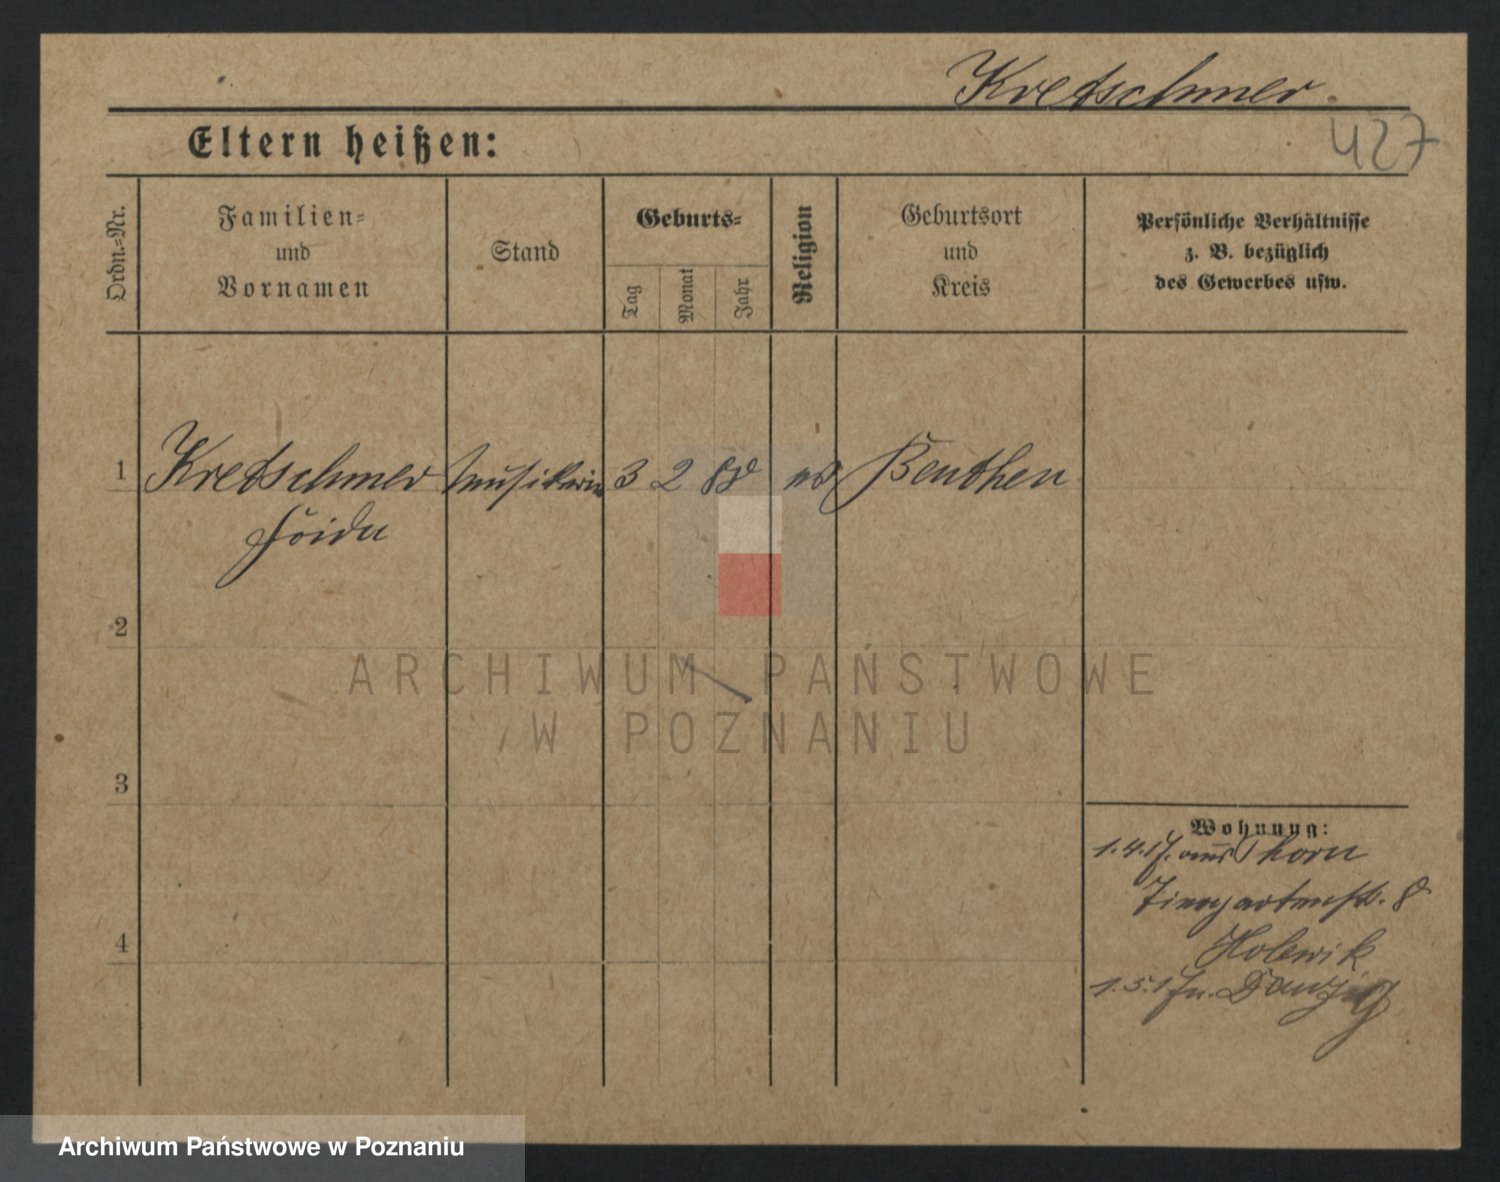 Kretschmer
427
Eltern heißen:
Ordn.=Nr.
Familien=
und
Vornamen
Stand
Geburts=
Tag
Monat
Jahr
Religion
Geburtsort
und
Kreis
Persönliche Verhältnisse
z. B. bezüglich
des Gewerbes usw.
1 Kretschmer Musikerin 3 2 88 Beuthen
2
3
4
Wohnung:
1.4.17. aus Thorn
Tiergartenstr. 8
Holewik
1.5.17 n. Danzig
ARCHIWUM PAŃSTWOWE
W POZNANIU
Archiwum Państwowe w Poznaniu